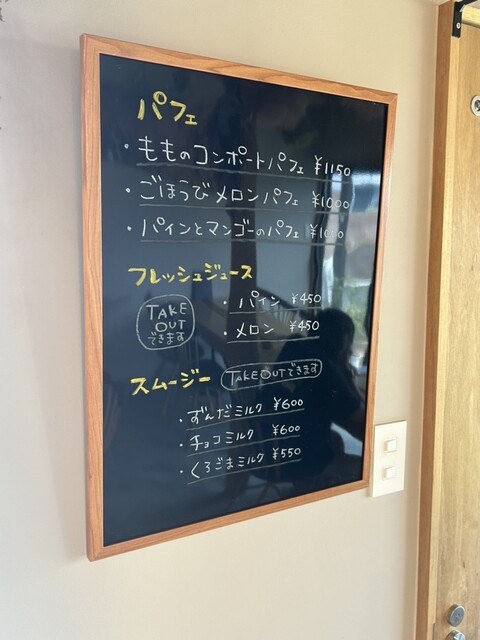 パフェ
・もものコンポートパフェ ¥1150
・ごほうびメロンパフェ ¥1000
・パインとマンゴーのパフェ ¥1000
フレッシュジュース
TAKE
OUT
できます
・パイン ¥450
・メロン ¥450
スムージー TAKEOUTできます
・ずんだミルク ¥600
・チョコミルク ¥600
・くろごまミルク ¥550